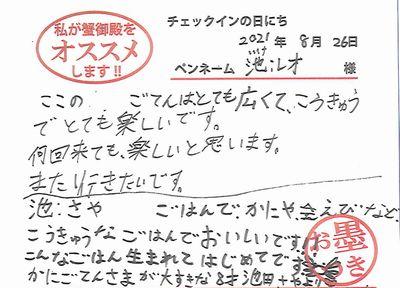 私が蟹御殿を
オススメ
します!!
チェックインの日にち
2021年 8月 26日
ペンネーム 池:レオ 様
いけ
ここの ごてんはとても広くて、こうきゅう
でとても楽しいです。
何回来ても、楽しいと思います。
また行きたいです。
池:さや ごはんで、かにや、会えびなど、
こうきゅうなごはんでおいしいです!!
こんなごはん生まれてはじめてです
かにごてんさまが大すきな8才池田
お墨
つき